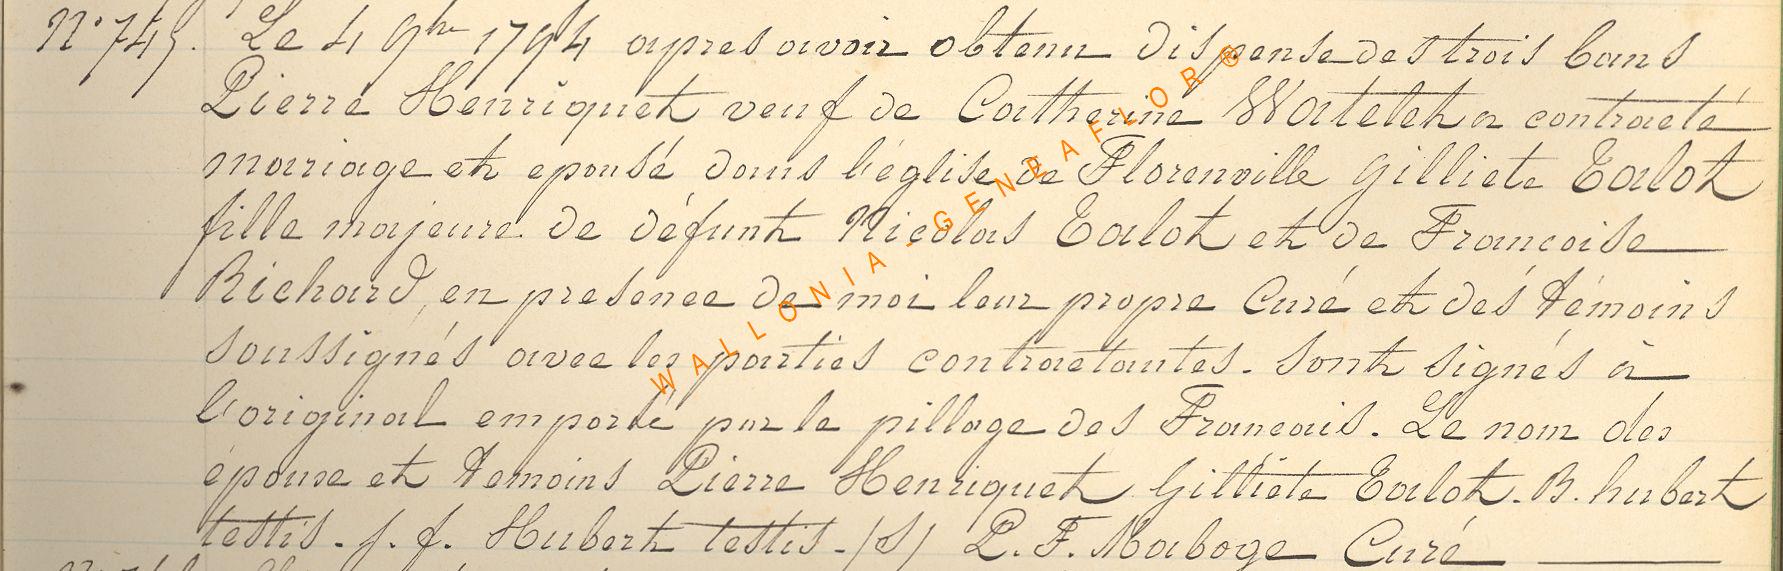 N° 745. Le 4 9bre 1794 apres avoir obtenu dispense des trois bans
Pierre Henriquet veuf de Catherine Watelet a contracté
mariage et epousé dans l'église de Florenville Gilliete Talot
fille majeure de défunt Nicolas Talot et de Francoise
Richard, en presence de moi leur propre Curé et des témoins
soussignés avec les parties contractantes. Sont signés à
l'original emporté par le pillage des Francais. Le nom des
épouse et temoins Pierre Henriquet Gilliete Talot. B. hubert
testis. j. f. Hubert testis. (S) P. F. Maboge Curé
WALLONIA GENEAFLOR®